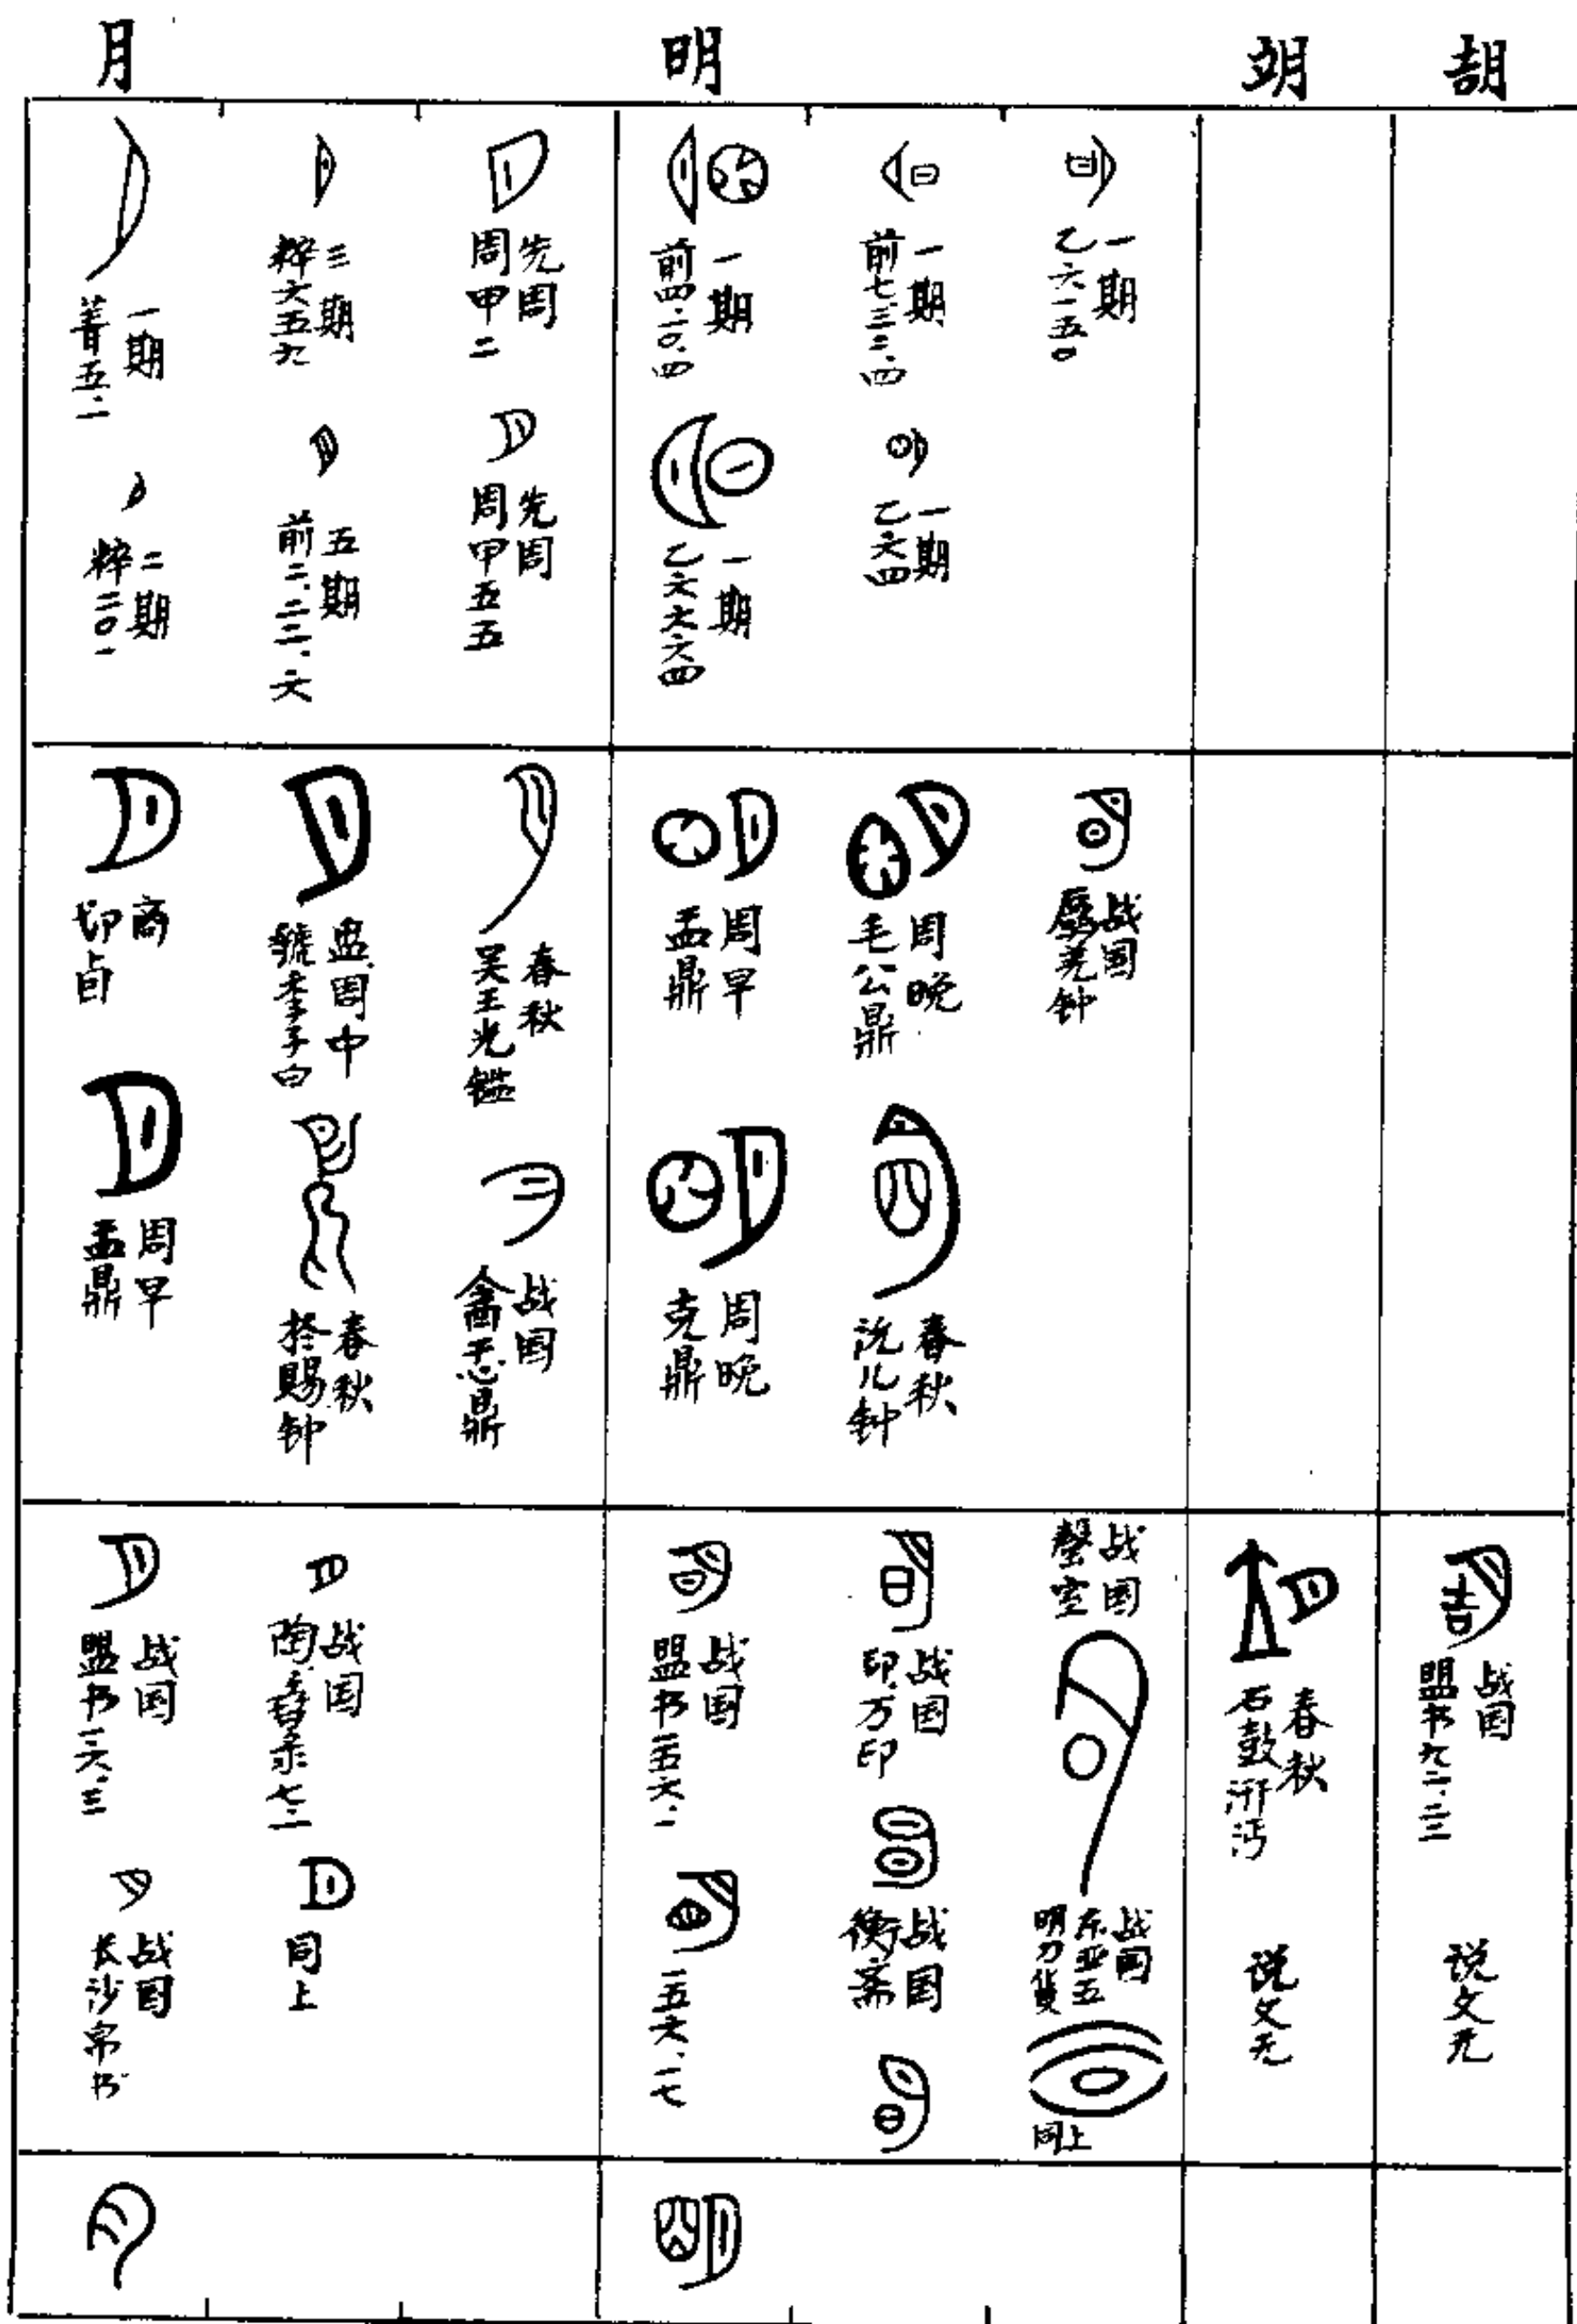 月
明
䇐
一期
菁五·二
二期
粹二〇一
三期
粹六五九
五期
前二·二三·六
先周
周甲二
先周
周甲五五
一期
前四·一〇·四
一期
乙六六六四
一期
前七·三二·四
一期
乙六四
一期
乙六一五〇
商
切卣
周早
盂鼎
周中
虢季子白盘
春秋
㧅賜钟
春秋
吴王光鑑
战国
酓忎鼎
周早
盂鼎
周晚
克鼎
周晚
毛公鼎
春秋
沇儿钟
战国
战国
盟书一六·三
战国
长沙帛书
战国
同上
战国
盟书一五六·一
一五六·一七
战国
印·方印
战国
衡斋
战国
战国
东亚五
明刀货
同上
春秋
石鼓汧沔
说文无
战国
说文无